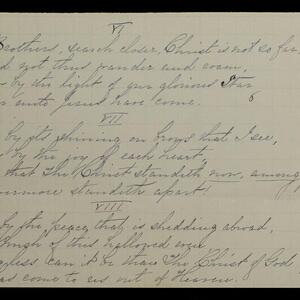 VI
Brothers, search closer, Christ is not so far,
not thus wander and roam,
by the light of our glorious Star
6
unto Jesus have come.
VII
by its shining on brows that I see,
by the joy of each heart,
that The Christ standeth now, among
standeth apart!
VIII
by the peace that is shedding abroad,
hush of this hallowed
can it be than The Christ of God
come to us out of Heaven.